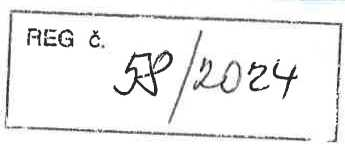 REG č.
58/2024